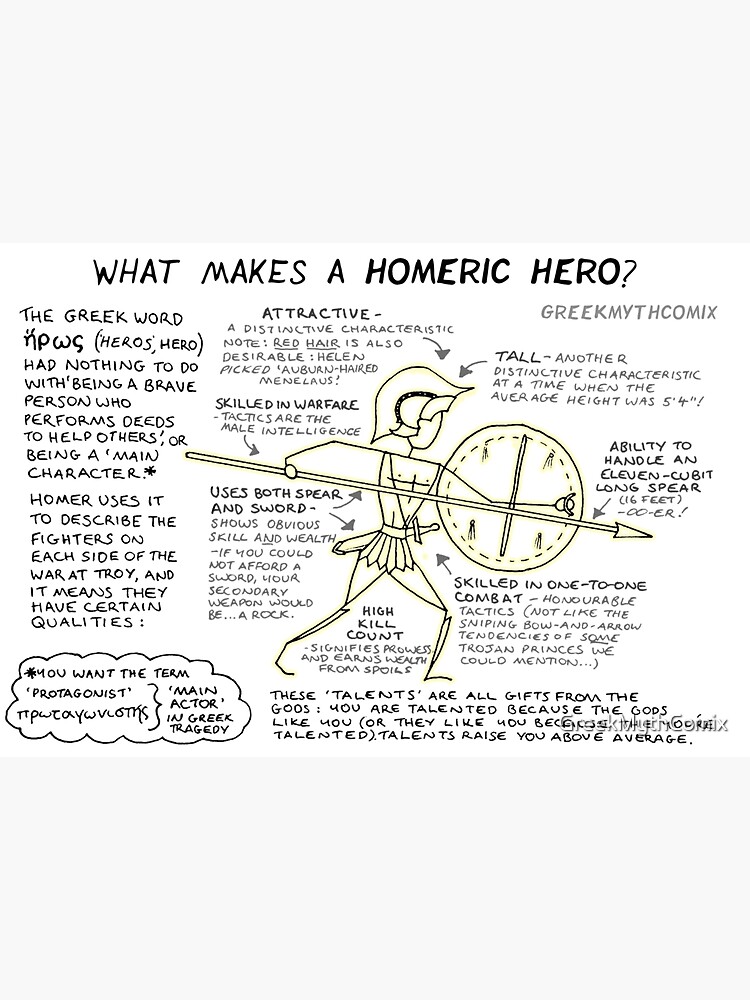 WHAT MAKES A HOMERIC HERO?
GREEKMYTHCOMIX
THE GREEK WORD
ἥρως (‘HEROS’, HERO)
HAD NOTHING TO DO
WITH ‘BEING A BRAVE
PERSON WHO
PERFORMS DEEDS
TO HELP OTHERS’, OR
BEING A ‘MAIN
CHARACTER’.*
HOMER USES IT
TO DESCRIBE THE
FIGHTERS ON
EACH SIDE OF THE
WAR AT TROY, AND
IT MEANS THEY
HAVE CERTAIN
QUALITIES:
*YOU WANT THE TERM
‘PROTAGONIST’
πρωταγωνιστής
‘MAIN
ACTOR’
IN GREEK
TRAGEDY
ATTRACTIVE -
A DISTINCTIVE CHARACTERISTIC
NOTE: RED HAIR IS ALSO
DESIRABLE: HELEN
PICKED ‘AUBURN-HAIRED
MENELAUS!
TALL - ANOTHER
DISTINCTIVE CHARACTERISTIC
AT A TIME WHEN THE
AVERAGE HEIGHT WAS 5'4"!
SKILLED IN WARFARE
- TACTICS ARE THE
MALE INTELLIGENCE
ABILITY TO
HANDLE AN
ELEVEN-CUBIT
LONG SPEAR
(16 FEET)
-OO-ER!
USES BOTH SPEAR
AND SWORD -
SHOWS OBVIOUS
SKILL AND WEALTH
- IF YOU COULD
NOT AFFORD A
SWORD, YOUR
SECONDARY
WEAPON WOULD
BE... A ROCK.
SKILLED IN ONE-TO-ONE
COMBAT - HONOURABLE
TACTICS (NOT LIKE THE
SNIPING BOW-AND-ARROW
TENDENCIES OF SOME
TROJAN PRINCES WE
COULD MENTION...)
HIGH
KILL
COUNT
- SIGNIFIES PROWESS
AND EARNS WEALTH
FROM SPOILS
THESE ‘TALENTS’ ARE ALL GIFTS FROM THE
GODS: YOU ARE TALENTED BECAUSE THE GODS
LIKE YOU (OR THEY LIKE YOU BECAUSE YOU ARE
TALENTED). TALENTS RAISE YOU ABOVE AVERAGE.
GreekMythComix